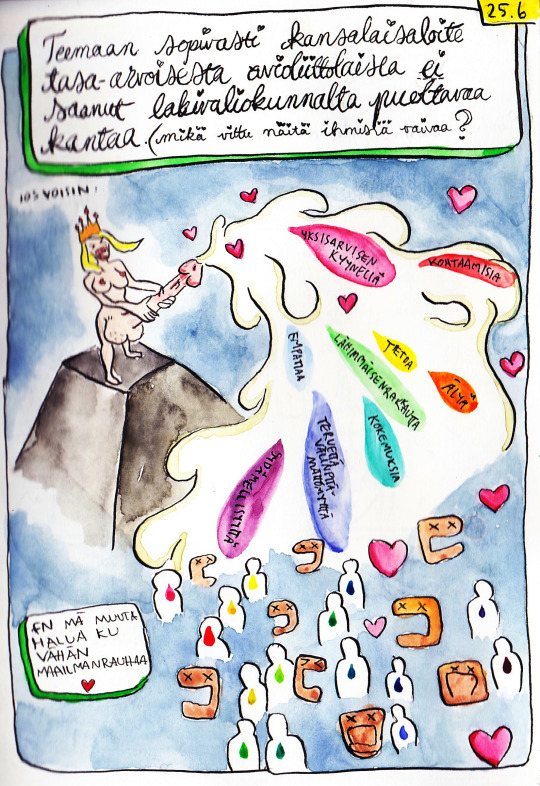 25.6
Teemaan sopivasti kansalaisaloite
tasa-arvoisesta avioliittolaista ei
saanut lakivaliokunnalta puoltavaa
kantaa. (mikä vittu näitä ihmisiä vaivaa?
JOS VOISIN.
YKSISARVISEN
KYYNELIÄ
KOHTAAMISIA
EMPATIAA
LÄHIMMÄISENRAKKAUTA
TIETOA
ÄLYÄ
SYDÄMELLISYYTTÄ
TERVETTÄ
VÄLINPITÄ-
MÄTTÖMYYTTÄ
KOKEMUKSIA
EN MÄ MUUTA
HALUA KU
VÄHÄN
MAAILMANRAUHAA